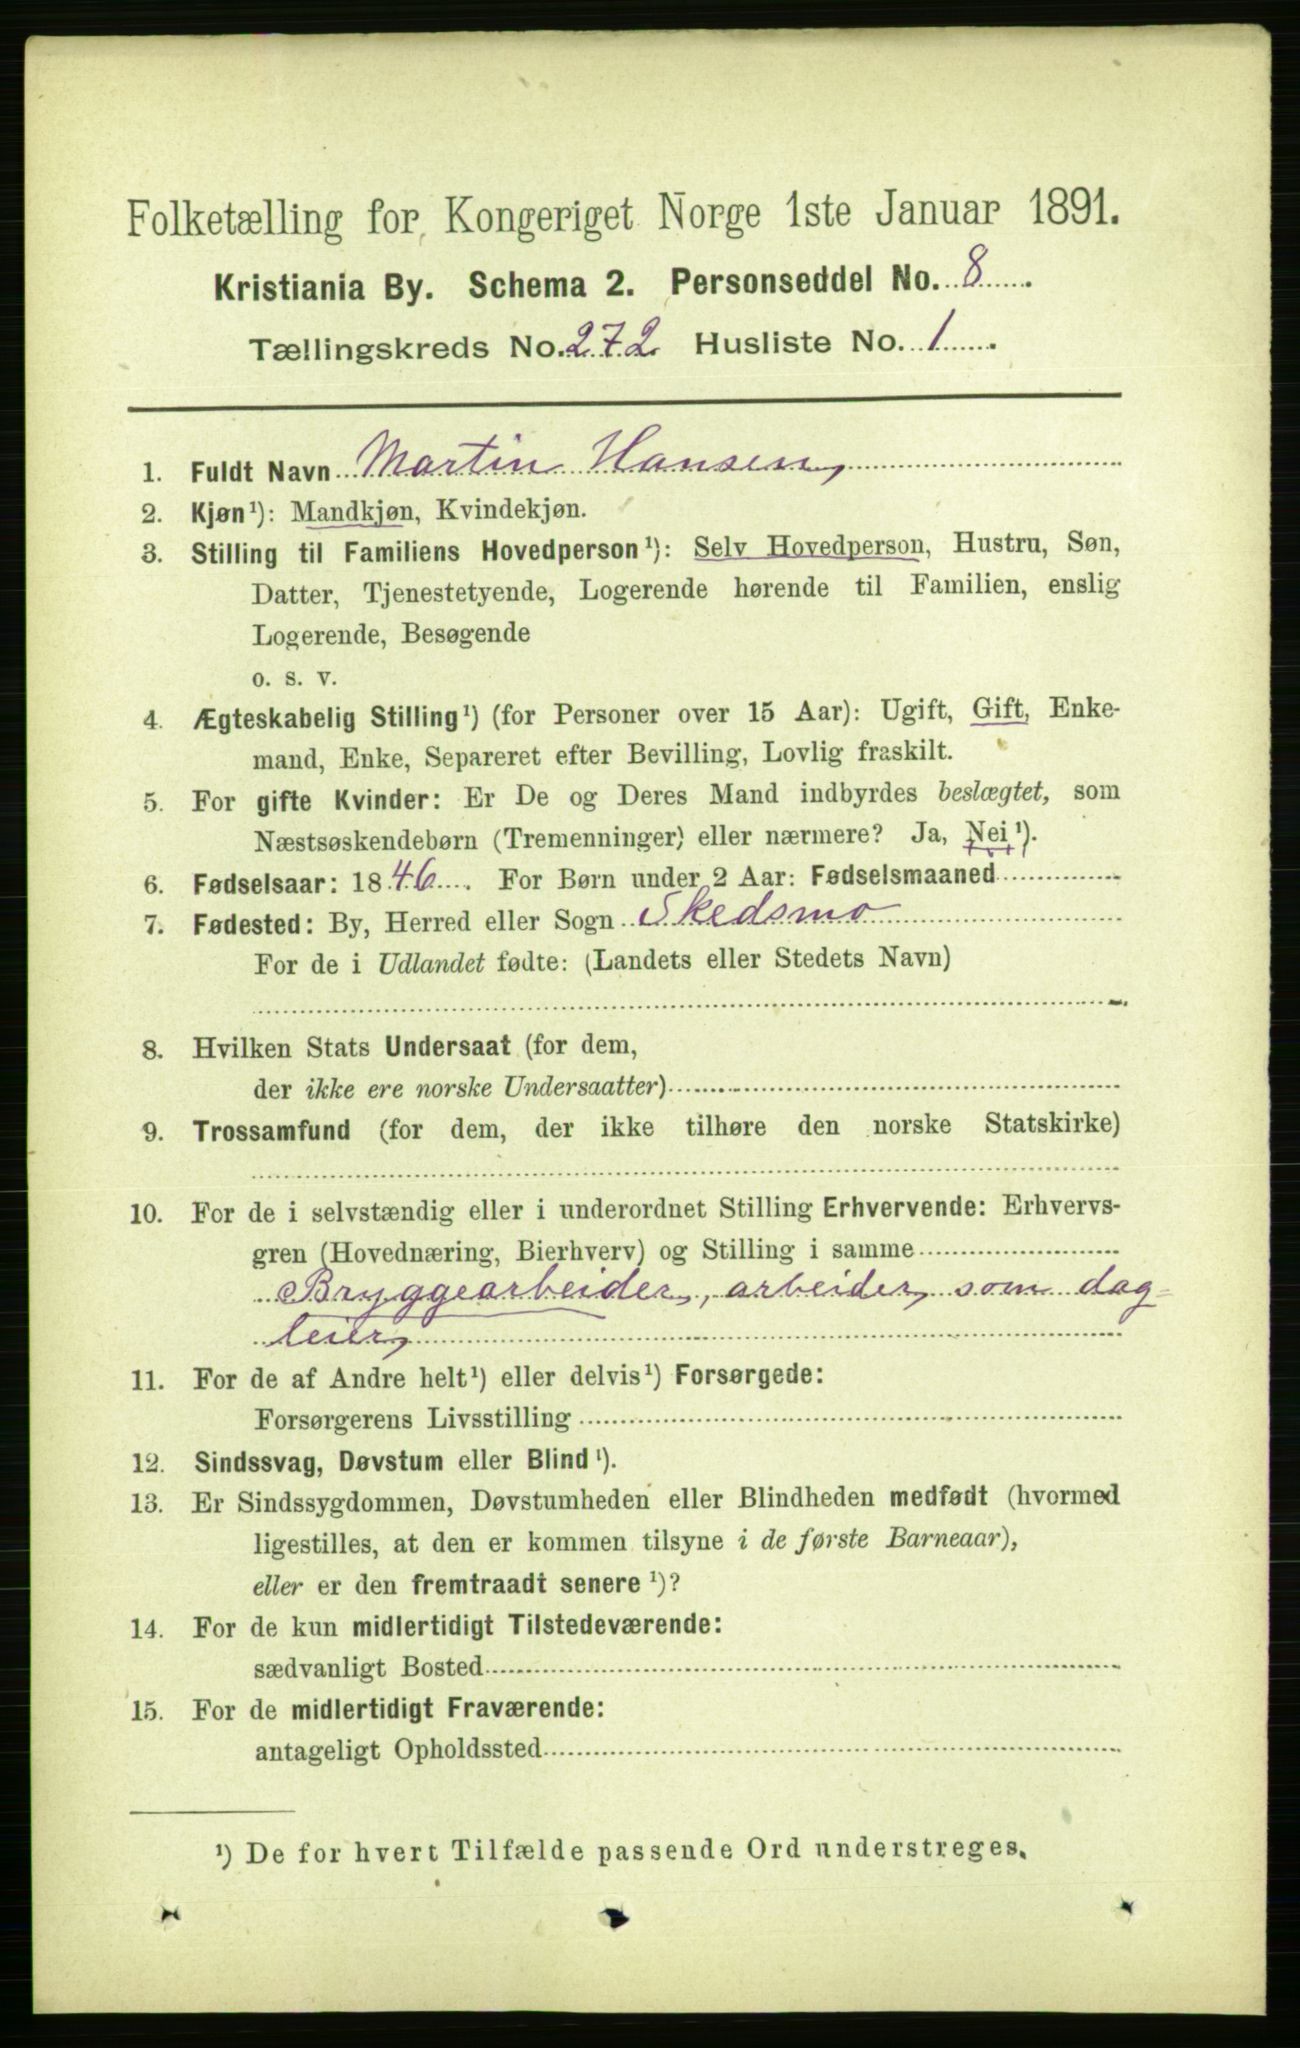 Folketælling for Kongeriget Norge 1ste Januar 1891.
Kristiania By. Schema 2. Personseddel No. 8
Tællingskreds No. 272 Husliste No. 1
1. Fuldt Navn Martin Hansen
2. Kjøn¹): Mandkjøn, Kvindekjøn.
3. Stilling til Familiens Hovedperson¹): Selv Hovedperson, Hustru, Søn,
Datter, Tjenestetyende, Logerende hørende til Familien, enslig
Logerende, Besøgende
o. s. v.
4. Ægteskabelig Stilling¹) (for Personer over 15 Aar): Ugift, Gift, Enke-
mand, Enke, Separeret efter Bevilling, Lovlig fraskilt.
5. For gifte Kvinder: Er De og Deres Mand indbyrdes beslægtet, som
Næstsøskendebørn (Tremenninger) eller nærmere? Ja, Nei¹).
6. Fødselsaar: 1846. For Børn under 2 Aar: Fødselsmaaned
7. Fødested: By, Herred eller Sogn Skedsmo
For de i Udlandet fødte: (Landets eller Stedets Navn)
8. Hvilken Stats Undersaat (for dem,
der ikke ere norske Undersaatter)
9. Trossamfund (for dem, der ikke tilhøre den norske Statskirke)
10. For de i selvstændig eller i underordnet Stilling Erhvervende: Erhvervs-
gren (Hovednæring, Bierhverv) og Stilling i samme
Bryggearbeider, arbeider som dag=
leier
11. For de af Andre helt¹) eller delvis¹) Forsørgede:
Forsørgerens Livsstilling
12. Sindssvag, Døvstum eller Blind¹).
13. Er Sindssygdommen, Døvstumheden eller Blindheden medfødt (hvormed
ligestilles, at den er kommen tilsyne i de første Barneaar),
eller er den fremtraadt senere¹)?
14. For de kun midlertidigt Tilstedeværende:
sædvanligt Bosted
15. For de midlertidigt Fraværende:
antageligt Opholdssted
¹) De for hvert Tilfælde passende Ord understreges.